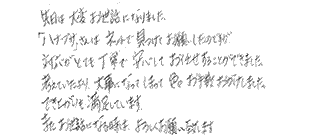 先日は大変お世話になりました。
「ハナブサ」さんはネットで見つけてお願いしたのですが
対応がとても丁寧で安心しておまかせすることができました。
考えていたより大事になってしまって色々お手数おかけしました。
でき上がりも満足しています。
またお世話になる時は、よろしくお願い致します